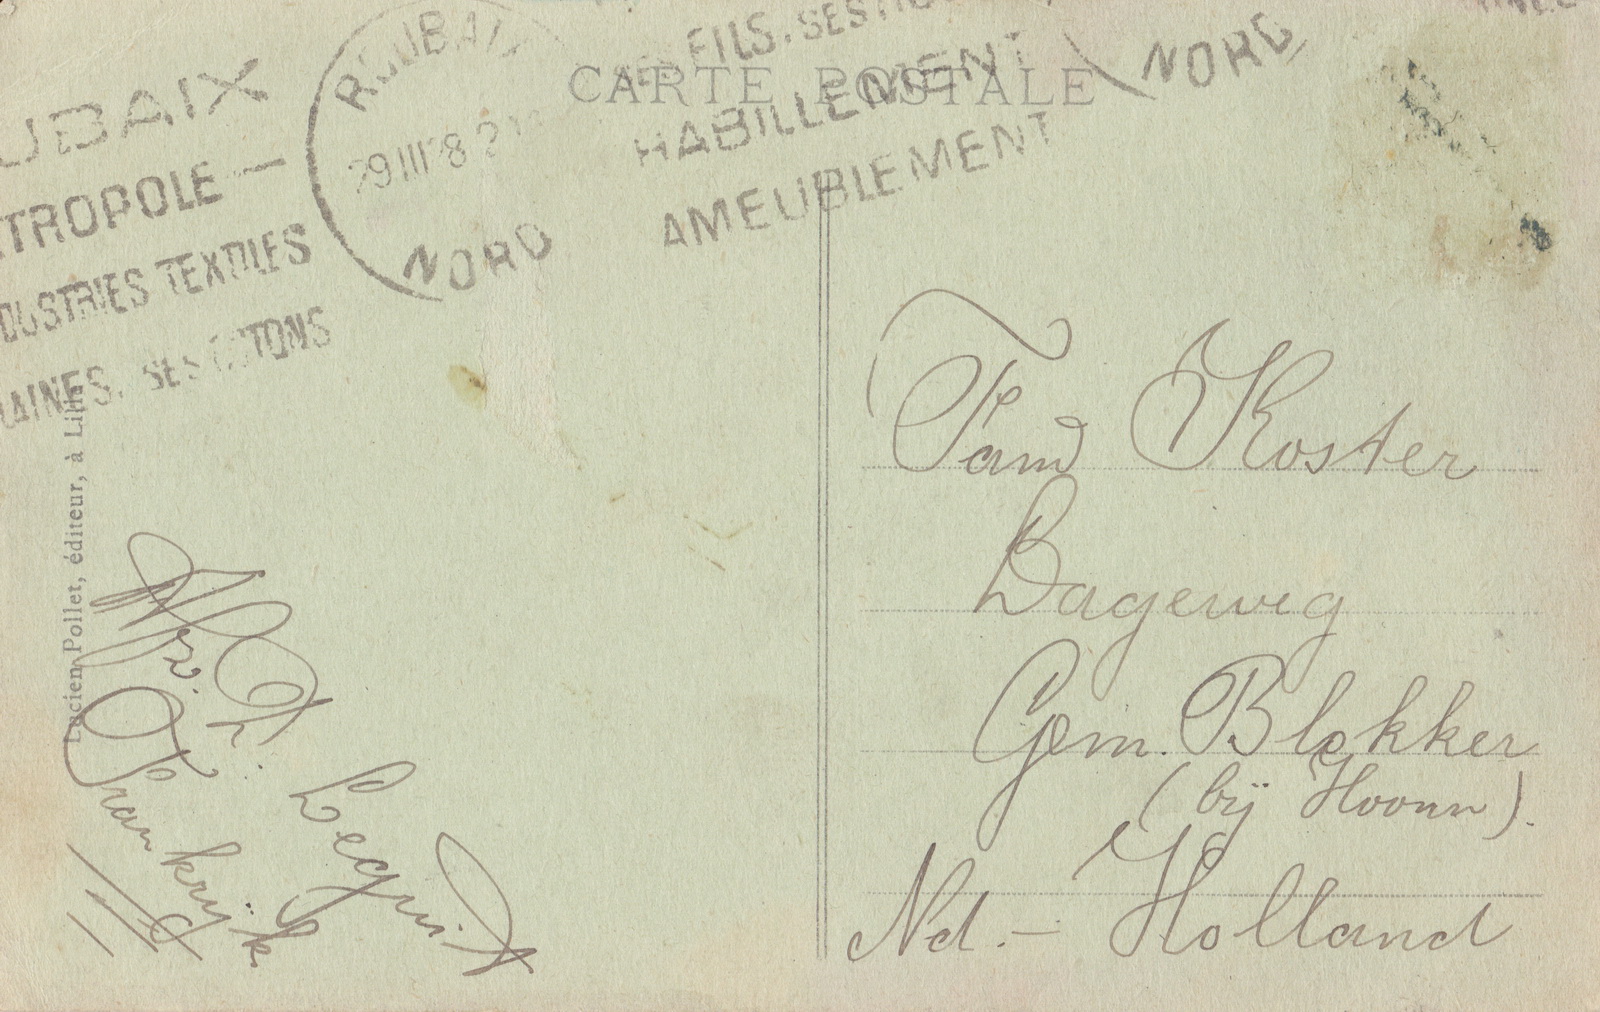 UBAIX
TROPOLE —
DUSTRIES TEXTILES
LAINES. SES COTONS
ROUBAIX
29 III 8
NORD
SES FILS. SES
HABILLEMENT
AMEUBLEMENT
NORD
CARTE POSTALE
Lucien Pollet, éditeur, à Lille
Frankrijk
Fam Koster
Bageweg
Gem. Blokker
(bij Hoorn).
Nd. - Holland